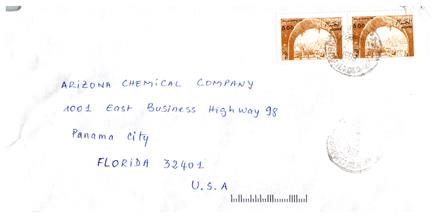 ARIZONA CHEMICAL COMPANY
1001 East Business Highway 98
Panama City
FLORIDA 32401
U.S.A